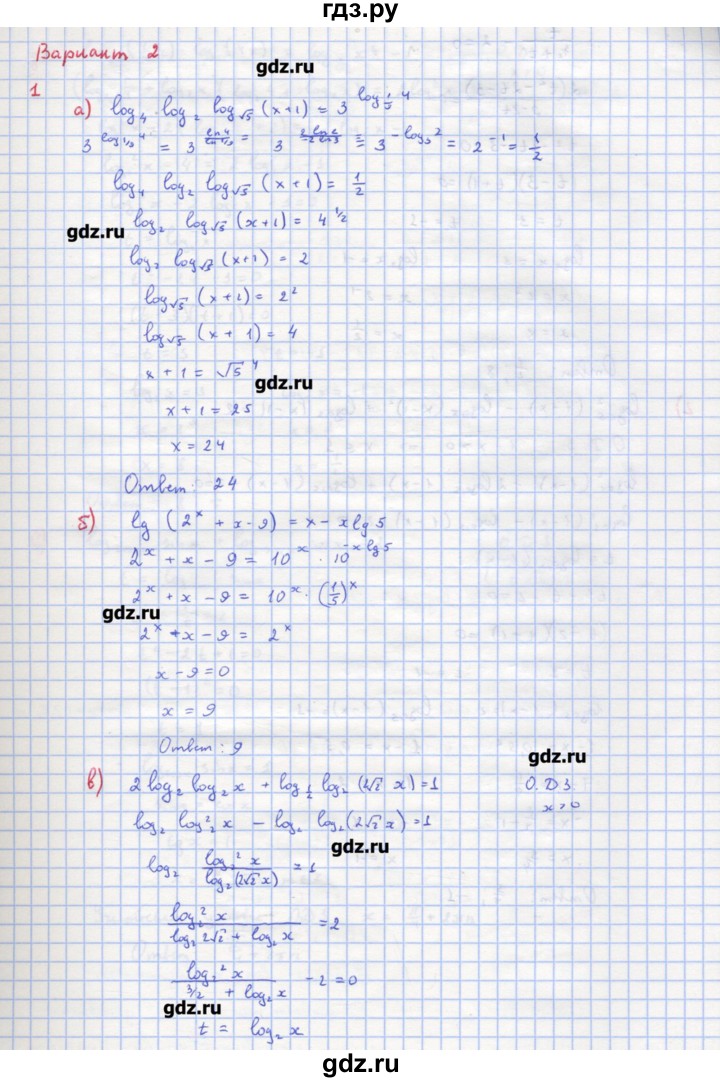 гдз.ру
Вариант 2
gdz.ru
1
а) log₄ log₂ log_√5 (x+1) = 3^(log_(1/9) 4)
= 3^(ln4/ln 1/9) = 3^(2 ln 2/-2 ln 3) = 3^(-log₃2) = 2^(-1) = 1/2
log₄ log₂ log_√5 (x+1) = 1/2
gdz.ru
log₂ log_√5 (x+1) = 4^(1/2)
log₂ log_√5 (x+1) = 2
log_√5 (x+1) = 2²
log_√5 (x+1) = 4
x+1 = √5⁴
gdz.ru
x+1 = 25
x = 24
Ответ: 24
б) lg (2^x + x - 9) = x - x lg 5
2^x + x - 9 = 10^x · 10^(-x lg5)
2^x + x - 9 = 10^x · (1/5)^x
gdz.ru
2^x + x - 9 = 2^x
x - 9 = 0
x = 9
Ответ: 9
gdz.ru
в) 2 log₂ log₂ x + log_(1/2) log₂ (2√2 x) = 1 О.Д.З.
x > 0
log₂ log₂² x - log₂ log₂ (2√2 x) = 1
gdz.ru
log₂ (log₂² x / log₂(2√2 x)) = 1
log₂² x / (log₂ 2√2 + log₂ x) = 2
log₂² x / (3/2 + log₂ x) - 2 = 0
gdz.ru
t = log₂ x
gdz.ru